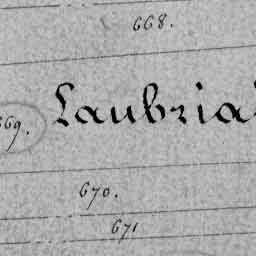 668.
669. Laubria
670.
671